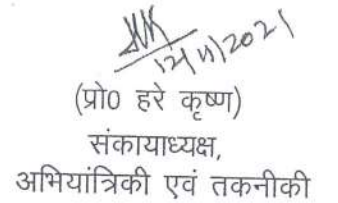 12/11/2021
(प्रो0 हरे कृष्ण)
संकायाध्यक्ष,
अभियांत्रिकी एवं तकनीकी